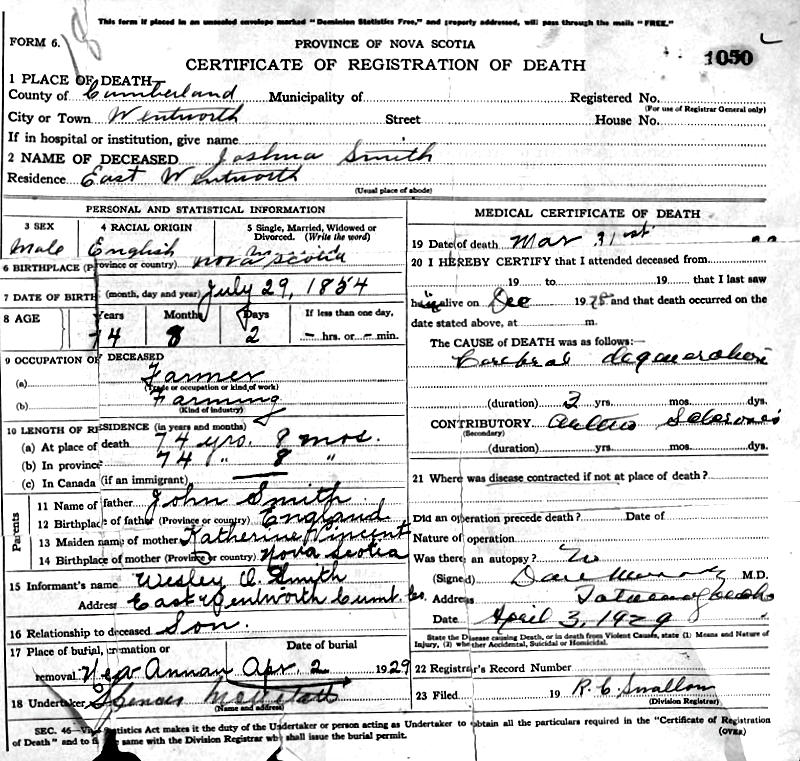 This form if placed in an unsealed envelope marked "Dominion Statistics Free," and properly addressed, will pass through the mails "FREE."
FORM 6.
18
PROVINCE OF NOVA SCOTIA
CERTIFICATE OF REGISTRATION OF DEATH
1050
1 PLACE OF DEATH
County of Cumberland Municipality of Registered No.
(For use of Registrar General only)
City or Town Wentworth Street House No.
If in hospital or institution, give name
2 NAME OF DECEASED Joshua Smith
Residence East Wentworth
(Usual place of abode)
PERSONAL AND STATISTICAL INFORMATION
3 SEX
Male
4 RACIAL ORIGIN
English
5 Single, Married, Widowed or Divorced. (Write the word)
m
6 BIRTHPLACE (Province or country) Nova Scotia
7 DATE OF BIRTH (month, day and year) July 29, 1854
8 AGE Years Months Days If less than one day,
74 8 2 — hrs. or — min.
9 OCCUPATION OF DECEASED
(a) Farmer
(Trade or occupation or kind of work)
(b) Farming
(Kind of industry)
10 LENGTH OF RESIDENCE (in years and months)
(a) At place of death 74 yrs. 8 mos.
(b) In province 74 " 8 "
(c) In Canada (if an immigrant)
Parents
11 Name of father John Smith
12 Birthplace of father (Province or country) England
13 Maiden name of mother Katherine Vincent
14 Birthplace of mother (Province or country) Nova Scotia
15 Informant's name Wesley O. Smith
Address East Wentworth Cumb. Co.
16 Relationship to deceased Son.
17 Place of burial, cremation or removal Date of burial
New Annan Apr. 2 1929
18 Undertaker
(Name and address)
MEDICAL CERTIFICATE OF DEATH
19 Date of death Mar 31st
20 I HEREBY CERTIFY that I attended deceased from
19 to 19 that I last saw
him alive on Dec 1928 and that death occurred on
date stated above, at m.
The CAUSE of DEATH was as follows:—
Cerebral degeneration
(duration) yrs. mos. dys.
CONTRIBUTORY Arterio Sclerosis
(Secondary)
(duration) yrs. mos. dys.
21 Where was disease contracted if not at place of death?
Did an operation precede death? Date of
Nature of operation
Was there an autopsy? No
(Signed) Dan Murray M.D.
Address Tatamagouche
Date April 3, 1929
State the Disease causing Death, or in death from Violent Causes, state (1) Means and Nature of Injury, (2) whether Accidental, Suicidal or Homicidal.
22 Registrar's Record Number
23 Filed 19 R. C. Swallow
(Division Registrar)
SEC. 46—Vital Statistics Act makes it the duty of the Undertaker or person acting as Undertaker to obtain all the particulars required in the "Certificate of Registration
of Death" and to file same with the Division Registrar who shall issue the burial permit.
(OVER)